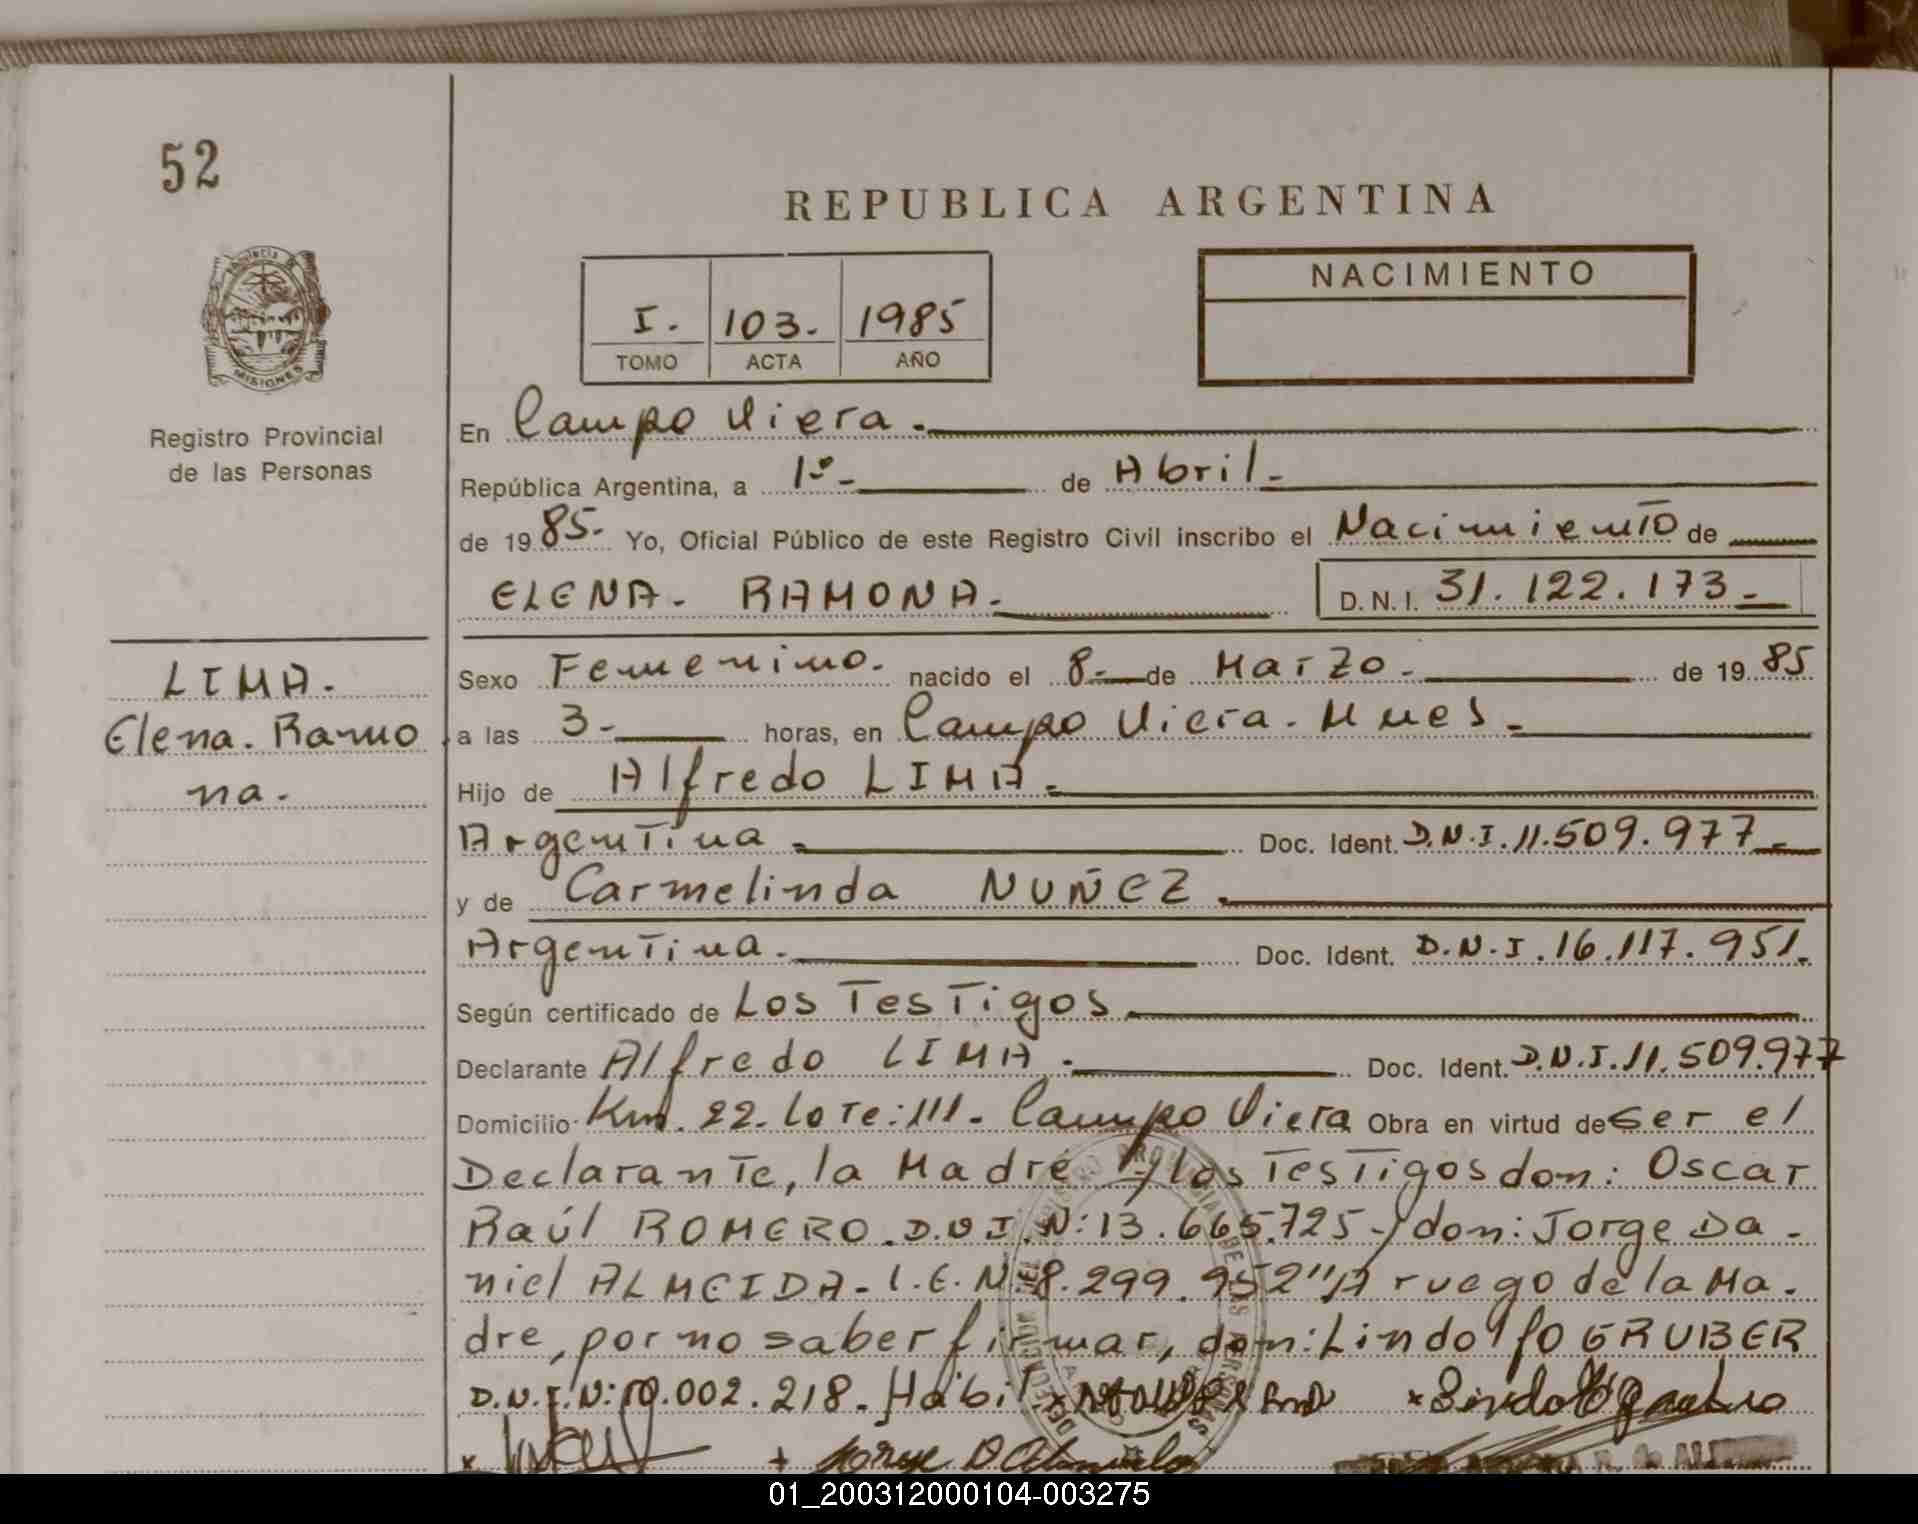 52
REPUBLICA ARGENTINA
NACIMIENTO
I. 103. 1985
TOMO ACTA AÑO
MISIONES
Registro Provincial
de las Personas
En Campo Viera.
República Argentina, a 1º- de Abril-
de 1985- Yo, Oficial Público de este Registro Civil inscribo el Nacimiento de
ELENA. RAMONA. D.N.I. 31.122.173-
LIMA.
Elena. Ramo
na.
Sexo Femenino. nacido el 8- de Marzo. de 1985
a las 3- horas, en Campo Viera.
Hijo de Alfredo LIMA.
Argentina Doc. Ident. D.N.I. 11.509.977-
y de Carmelinda NUÑEZ.
Argentina. Doc. Ident. D.N.I. 16.117.951.
Según certificado de Los Testigos
Declarante Alfredo LIMA. Doc. Ident. D.N.I. 11.509.977
Domicilio Km. 22. Lote: 111. Campo Viera Obra en virtud de ser el
Declarante, la Madre y los Testigos don: Oscar
Raúl ROMERO. D.N.I. N: 13.665.725 y don: Jorge Da-
niel ALMEIDA- L.E. N: 8.299.952" A ruego de la Ma-
dre, por no saber firmar, don: Lindolfo GRUBER
D.N.I. N: 10.002.218.
01_200312000104-003275